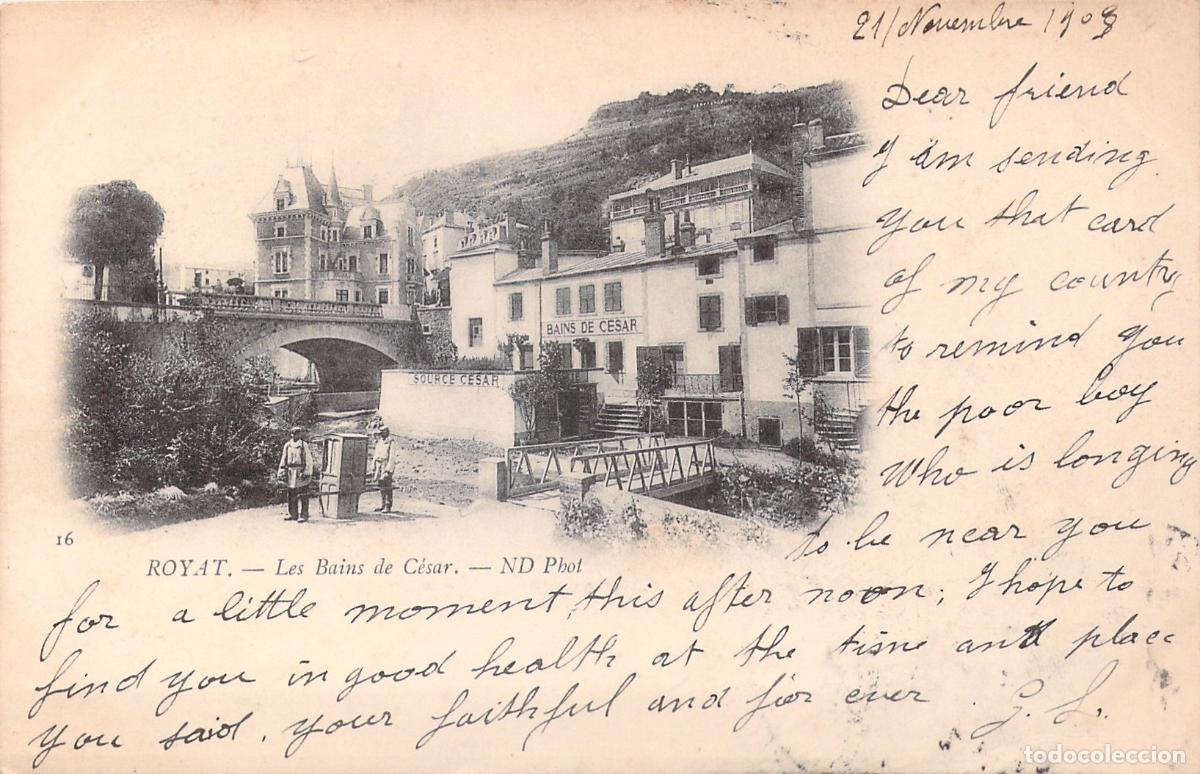 21/Novembre 1903
Dear friend
I am sending
you that card
of my country
to remind you
the poor boy
Who is longing
to be near you
for a little moment, this after noon; I hope to
find you in good health at the time and place
you said, your faithful and for ever. G. L.
BAINS DE CÉSAR
SOURCE CÉSAR
16
ROYAT. — Les Bains de César. — ND Phot
todocoleccion